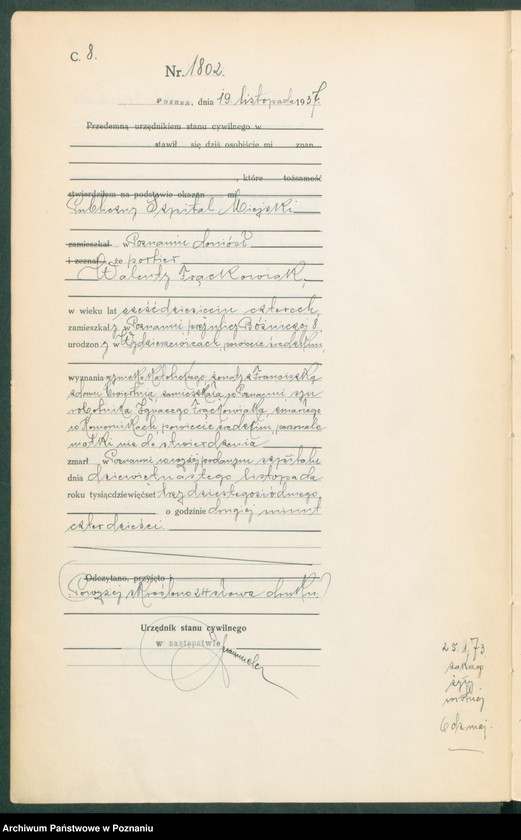 C. 8.
Nr. 1802.
Poznań, dnia 19 listopada 1937.
Przedemną urzędnikiem stanu cywilnego w
stawił się dziś osobiście mi znan
, które tożsamość
stwierdziłem na podstawie okazan mi
Publiczny Szpital Miejski
zamieszkał w Poznaniu doniósł
i zeznał, że portier
Walenty Frąckowiak,
w wieku lat sześćdziesięciu czterech,
zamieszkały w Poznaniu, przy ulicy Bóżniczej 8,
urodzony w powiecie średzkim,
wyznania rzymsko katolickiego, żonaty z Franciszką
z domu zamieszkałą w Poznaniu, syn
robotnika Ignacego Frąckowiaka, zmarłego
w Komornikach, powiecie średzkim, personalia
matki nie do stwierdzenia
zmarł w Poznaniu w wyżej podanym szpitalu
dnia dziewiętnastego listopada
roku tysiącdziewięćset trzydziestego siódmego
o godzinie drugiej minut
czterdzieści.
Odczytano, przyjęto i
Powyżej skreślono 24 słowa druku.
Urzędnik stanu cywilnego
w zastępstwie
25.1.73
Archiwum Państwowe w Poznaniu